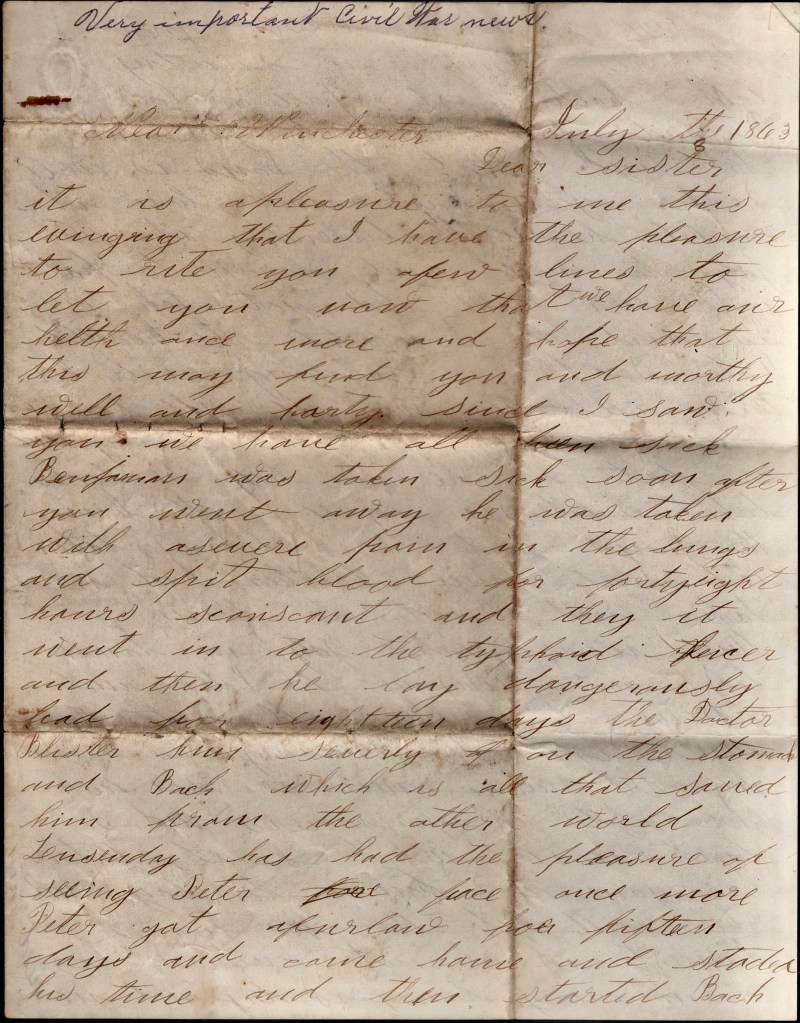 Very important Civil War news.
Near Winchester July the 8 1863
Dear sister
it is apleasure to me this
evinging that I have the pleasure
to rite you afew lines to
let you now that we have air
helth once more and hope that
this may find you and worthy
will and harty. since I saw.
you we have all been sick
Benjaman was taken sick soon after
you went away he was taken
with asevere pain in the lungs
and spit blood for fortyeight
hours and they it
went in to the typhoid fever
and then he lay dangerously
bad for eighteen days the Doctor
Blister him severly on the stomach
and Back which is all that saved
him from the other world
has had the pleasure of
seeing Peter face once more
Peter got afurlow for fifteen
days and come home and staded
his time and then started Back